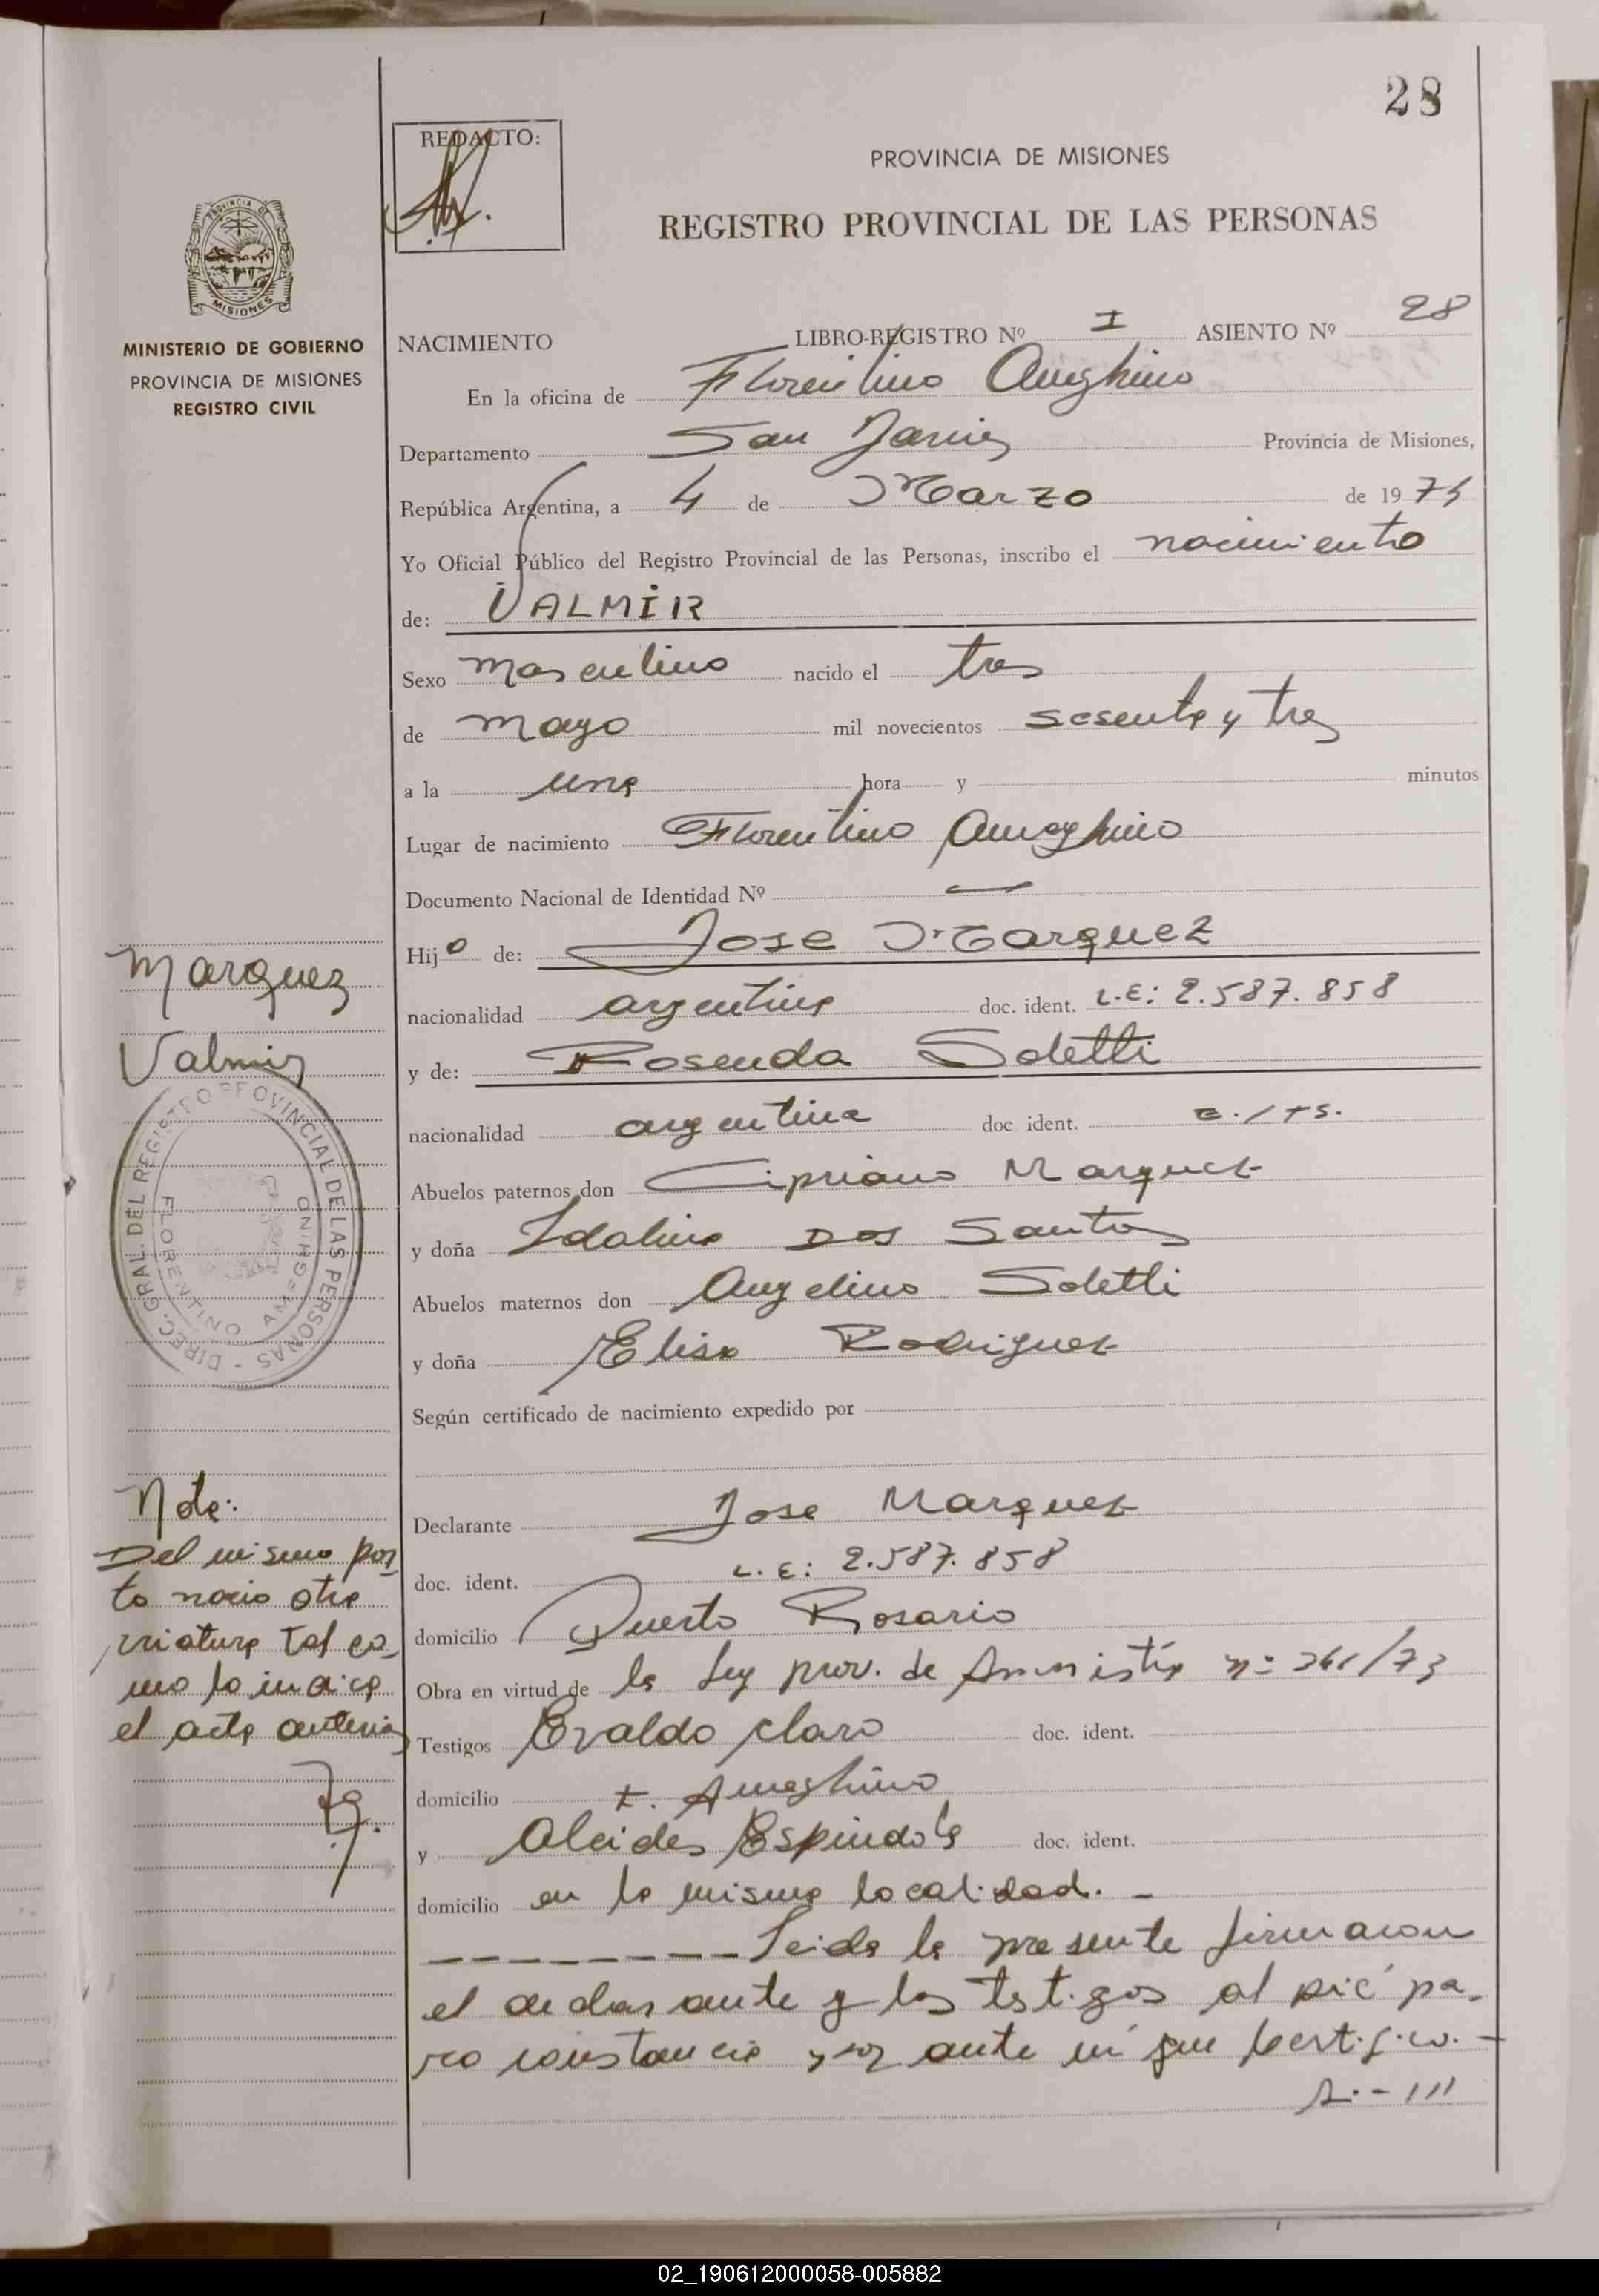 28
REDACTO:
PROVINCIA DE MISIONES
REGISTRO PROVINCIAL DE LAS PERSONAS
PROVINCIA DE
MISIONES
MINISTERIO DE GOBIERNO
PROVINCIA DE MISIONES
REGISTRO CIVIL
NACIMIENTO LIBRO-REGISTRO Nº I ASIENTO Nº 28
En la oficina de Florentino Ameghino
Departamento San Javier Provincia de Misiones,
República Argentina, a 4 de Marzo de 1974
Yo Oficial Público del Registro Provincial de las Personas, inscribo el nacimiento
de: VALMIR
Sexo masculino nacido el tres
de mayo mil novecientos sesenta y tres
a la una hora y minutos
Lugar de nacimiento Florentino Ameghino
Documento Nacional de Identidad Nº —
Hijo de: Jose Marquez
nacionalidad argentina doc. ident. L.E: 2.587.858
y de: Rosenda Soletti
nacionalidad argentina doc ident.
Abuelos paternos don Cipriano Marquez
y doña Idalina Dos Santos
Abuelos maternos don Angelino Soletti
y doña Elisa Rodriguez
Según certificado de nacimiento expedido por
Declarante Jose Marquez
doc. ident. L.E: 2.587.858
domicilio Puerto Rosario
Obra en virtud de la Ley prov. de Amnistía nº /73
Testigos Evaldo Claro doc. ident.
domicilio F. Ameghino
y Alcides Espindola doc. ident.
domicilio en la misma localidad. —
-------- Leida la presente firmaron
el declarante y los testigos al pié pa-
ra constancia por ante mi que certifico. —
Marquez
Valmir
DIREC. GRAL. DEL REGISTRO PROVINCIAL DE LAS PERSONAS -
FLORENTINO AMEGHINO
Nota:
Del mismo par-
to nacio otra
criatura tal co-
mo lo indica
el acta anterior
02_190612000058-005882